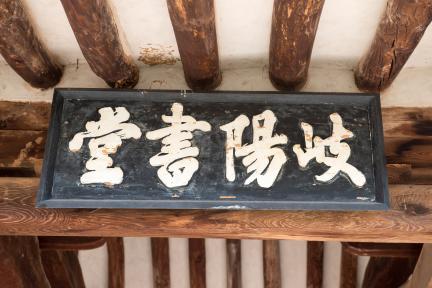 岐陽書堂